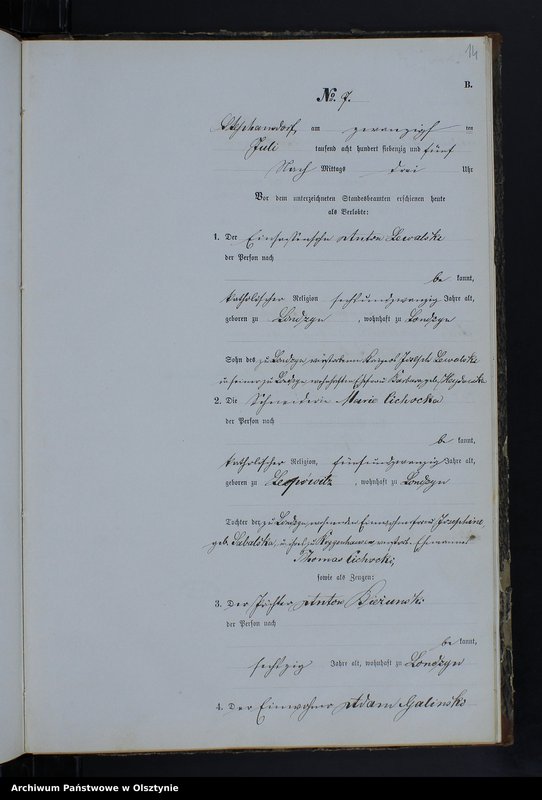 14
B.
No. 7.
am zwanzigsten
Juli tausend acht hundert siebenzig und fünf
Nach Mittags drei Uhr
Vor dem unterzeichneten Standesbeamten erschienen heute
als Verlobte:
1. Der Einsassensohn Anton Lewalski
der Person nach
be kannt,
katholischer Religion sechsundzwanzig Jahre alt,
geboren zu Londzyn, wohnhaft zu Londzyn
Sohn des zu Londzyn verstorbenen Joseph Lewalski
u. seiner zu Londzyn wohnhaften Ehefrau Barbara geb.
2. Die Schneiderin Marie Cichocka
der Person nach
be kannt,
katholischer Religion, fünfundzwanzig Jahre alt,
geboren zu, wohnhaft zu Londzyn
Tochter der zu Londzyn wohnenden Einwohnerfrau Josephine
geb. u. ihres zu verstorb. Ehemannes
Thomas Cichocki,
sowie als Zeugen:
3. Der Anton
der Person nach
be kannt,
sechzig Jahre alt, wohnhaft zu Londzyn
4. Der Einwohner Adam Galinski
Archiwum Państwowe w Olsztynie